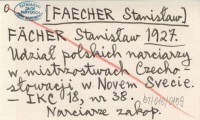 [FAECHER Stanisław]
FÄCHER Stanisław 1927.
Udział polskich narciarzy
w mistrzostwach Czecho-
słowacji w Novem Svecie.
– IKC 18, nr 38.
Narciarze zakop.